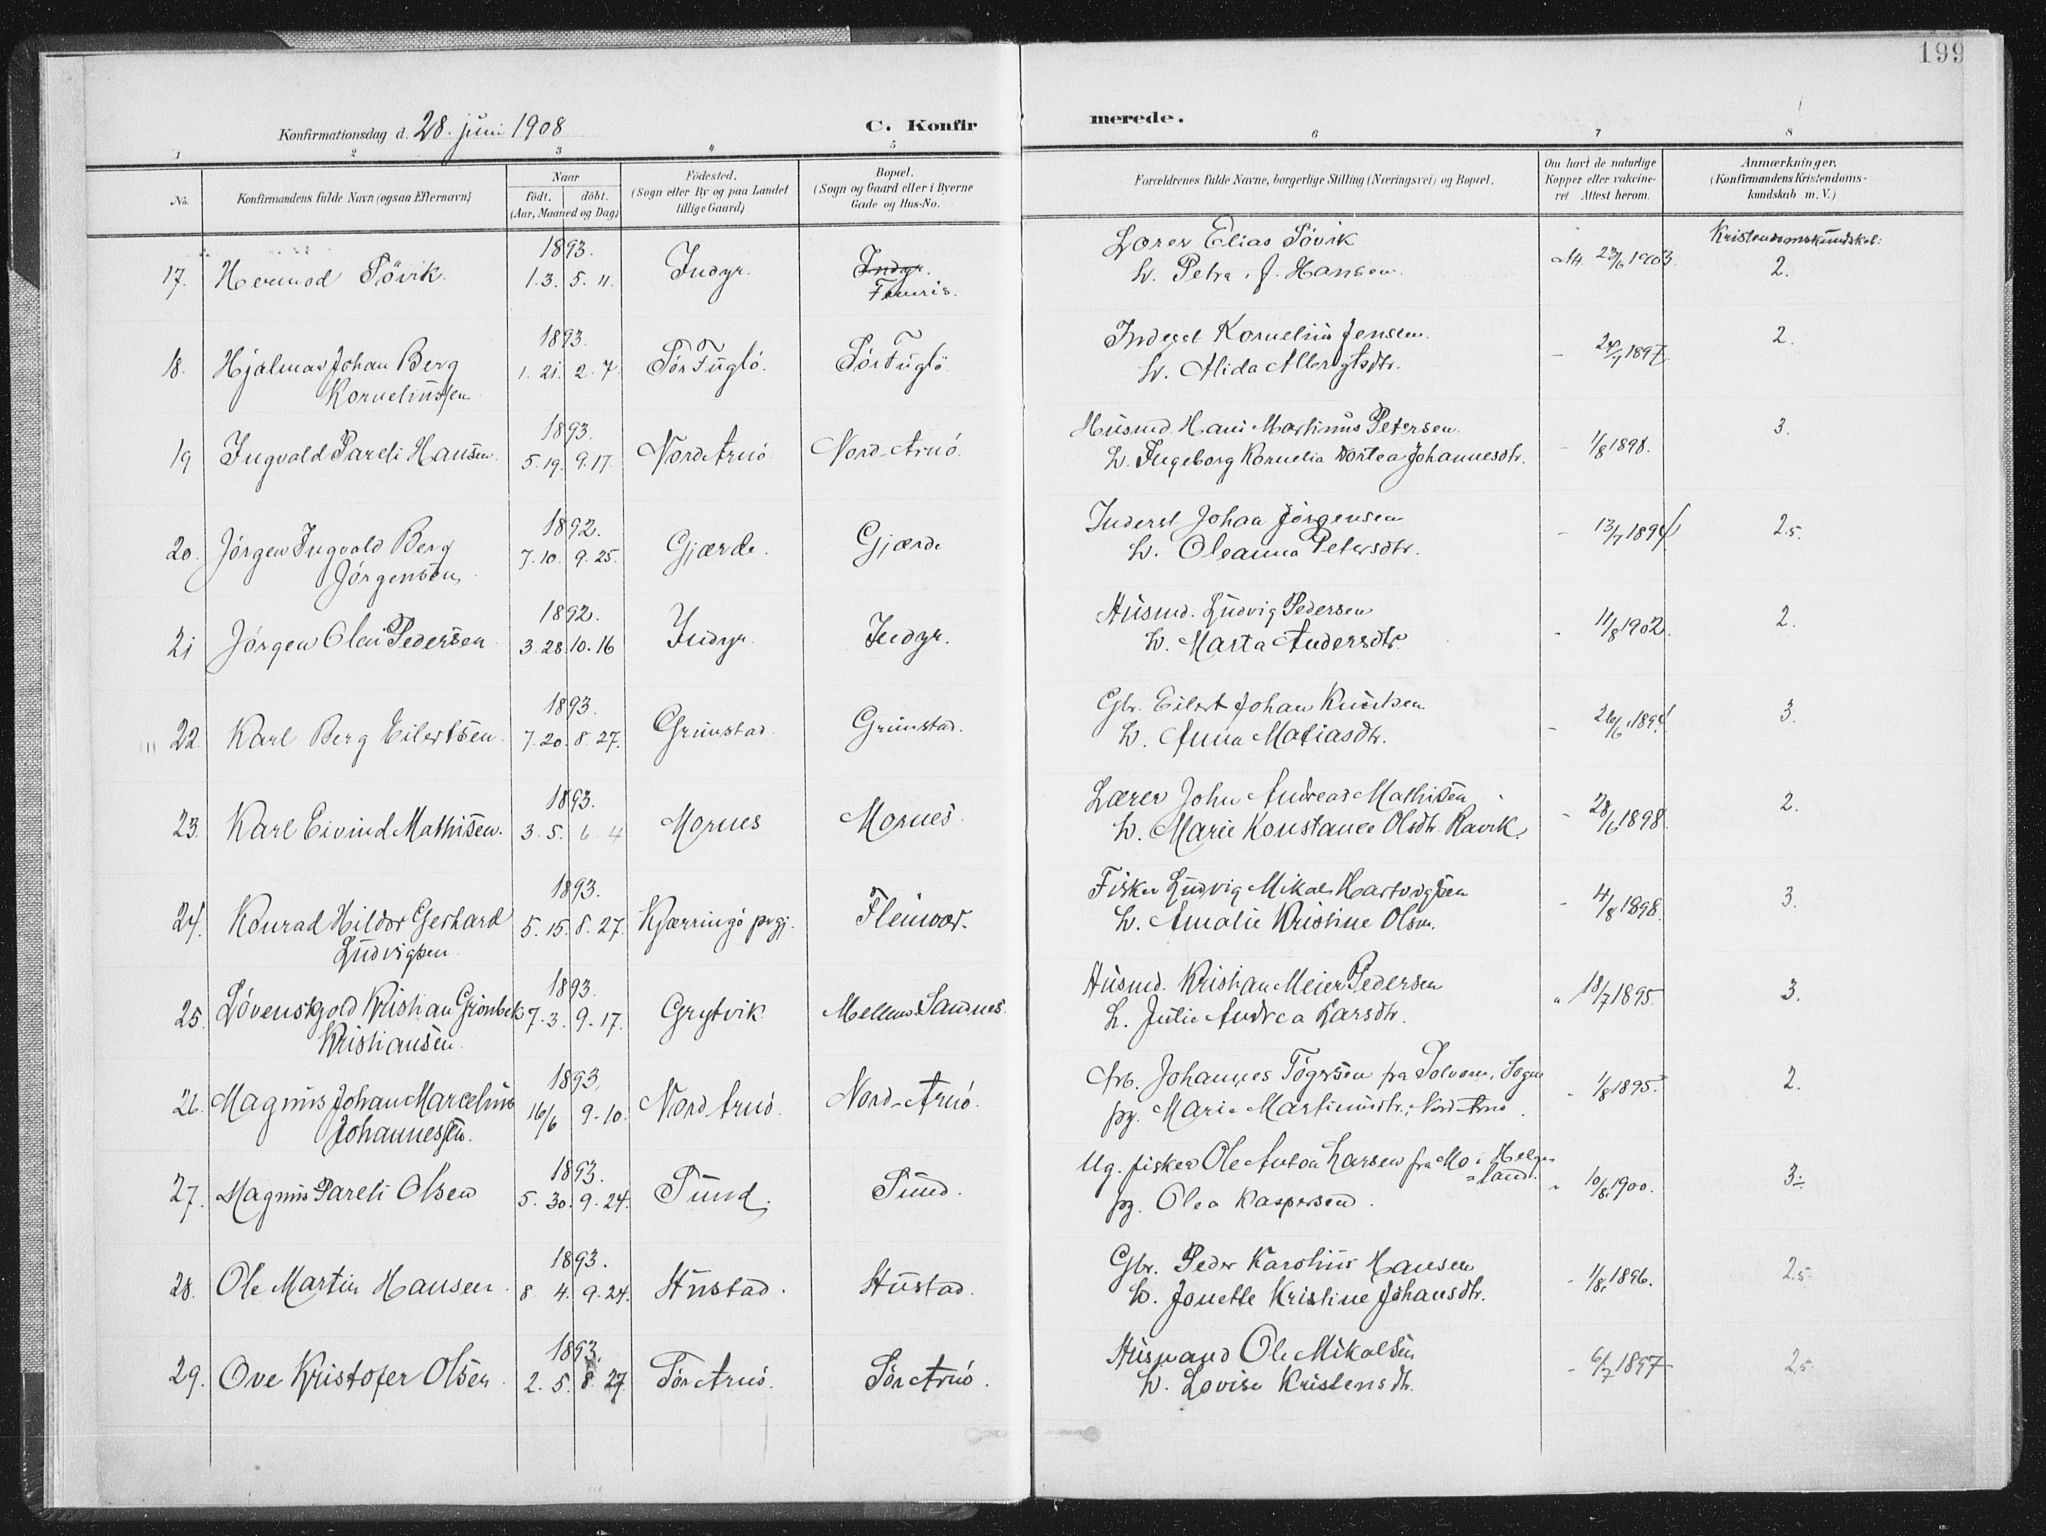 199
Konfirmationsdag d. 28. juni 1908
C. Konfirmerede.
1 2 3 4 5 6 7 8
No.
Konfirmandens fulde Navn (ogsaa Efternavn)
Naar
födt. döbt.
(Aar, Maaned og Dag)
Födested.
(Sogn eller By og paa Landet
tillige Gaard)
Bopæl.
(Sogn og Gaard eller i Byerne
Gade og Hus-No.
Forældrenes fulde Navne, borgerlige Stilling (Næringsvei) og Bopæl.
Om havt de naturlige
Kopper eller vakcine-
ret Attest herom.
Anmærkninger.
(Konfirmandens Kristendoms-
kundskab m. V.)
Kristendomskundskab:
17. Hermod Sövik 1893. 1. 3. 5. 11. Indyr. Indyr. Lærer Elias Sövik 23/6 1903. 2.
Fauris. h. Petra J. Hansen.
18. Hjalmar Johan Berg 1893. 1. 21. 2. 7. Sör Fuglö. Sör Fuglö Inderst Kornelius Jensen. 1897 2.
Korneliussen h. Alida Albregtsdtr.
19 Ingvald Pareli Hansen. 1893. 5. 19. 9. 17. Nord Arnö Nord-Arnö. Husmd. Hans Martinus Petersen. 1/8 1898. 3.
h. Ingeborg Kornelia Dortea Johannesdtr.
20. Jörgen Ingvald Berg 1892. 7. 10. 9. 25. Gjærde. Gjærde Inderst Johan Jörgensen 13/7 1894 2.5.
Jörgensen h. Oleanna Petersdtr.
21 Jörgen Olai Pedersen 1892. 3. 28. 10. 16 Indyr. Indyr. Husmd. Ludvig Pedersen 11/8 1902. 2.
h. Marta Andersdtr.
22. Karl Berg Eilertsen. 1893. 7. 20. 8. 27. Grimstad. Grimstad. Gbr. Eilert Johan Knutsen 26/6 1894 3.
h. Anna Matiasdtr.
23. Karl Eivind Mathisen. 1893. 3. 5. 6. 4 Mornes Mornes. Lærer John Andreas Mathisen 28/6 1898. 2.
h. Marie Konstance Olsdtr. Ravik.
24. Konrad Hildor Gerhard 1893. 5. 15. 8. 27. Kjærringö prgj. Fleinvær. Fisker Ludvig Mikal Hartvigsen 4/8 1898. 3.
Ludvigsen h. Amalie Kristine Olsen.
25. Lövenskjold Kristian Grönbek 1893. 7. 3. 9. 17. Grytvik Mellem Sandnes. Husmd. Kristian Meier Pedersen 18/7 1895. 3.
Kristiansen h. Julie Andrea Larsdtr.
26. Magnus Johan Marcelius 1893. 16/6 9. 10. Nord Arnö. Nord-Arnö. Arb. Johannes Tögersen fra Solvorn, Sogn 1/8 1895. 2.
Johannessen. pg. Marie Martinusdtr., Nord-Arnö.
27. Magnus Pareli Olsen 1893. 5. 30. 9. 24. Sund. Sund. Ug. fisker Ole Anton Larsen fra Mo i Helge- 10/8 1900. 3.
land. pg. Olea Kaspersen.
28. Ole Martin Hansen. 1893. 8. 4. 9. 24. Hustad. Hustad. Gbr. Peder Karolius Hansen 1/8 1896. 2.5.
h. Jonette Kristine Johansdtr.
29. Ove Kristofer Olsen. 1893. 2. 5. 8. 27. Sör Arnö. Sör Arnö. Husmand Ole Mikalsen 6/7 1897 2.5
h. Lovise Kristensdtr.